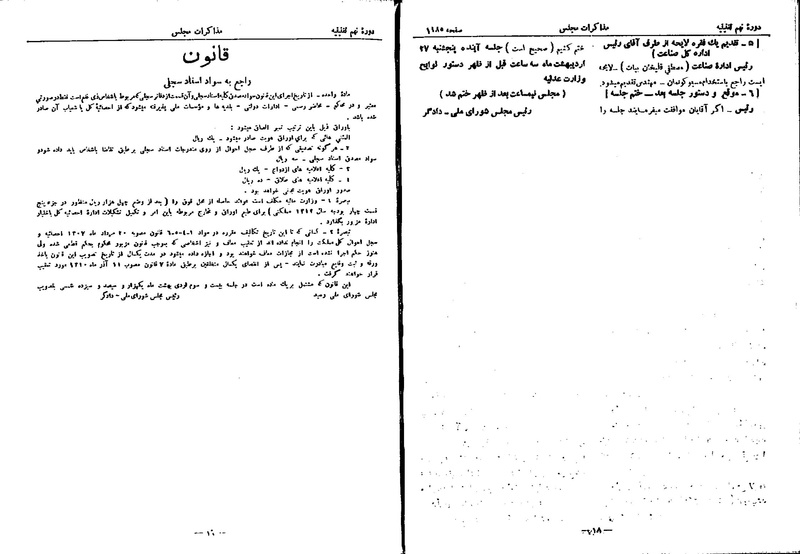 دورهٔ نهم تقنینیه
مذاکرات مجلس
صفحه ۱۱۸۵
[ ۵ ـ تقدیم یك فقره لایحه از طرف آقای رئیس
اداره کل صناعت ]
رئیس ادارهٔ صناعت ( مصطفی قلیخان بیات ) ـ لایحه
ایست راجع باستخدام
مهندس تقدیم میشود
[ ۶ ـ موقع و دستور جلسه بعد ـ ختم جلسه ]
رئیس ـ اگر آقایان موافقت میفرمایند جلسه را
ختم کنیم ( صحیح است ) جلسه آینده پنجشنبه ۲۷
اردیبهشت ماه سه ساعت قبل از ظهر دستور لوایح
وزارت عدلیه
( مجلس نیمساعت بعد از ظهر ختم شد )
رئیس مجلس شورای ملی ـ دادگر
دورهٔ نهم تقنینیه
مذاکرات مجلس
قانون
راجع به سواد اسناد سجلی
مادهٔ واحده ـ از تاریخ اجرای این قانون سواد مصدق کلیه اسناد سجلی و آن قسمت از دفاتر سجلی که مربوط باشخاص ذی نفع است فقط در صورتی
معتبر و در محاکم ـ محاضر رسمی ـ ادارات دولتی ـ بلدیه ها و مؤسسات ملی پذیرفته میشود که از احصائیهٔ کل یا شعبات آن صادر
شده باشد .
باوراق قبل باین ترتیب تمبر الصاق میشود :
المثنی هائی که برای اوراق هویت صادر میشود ـ یك ریال
۲ ـ هر گونه تصدیقی که از طرف سجل احوال از روی مندرجات اسناد سجلی بر طبق تقاضا باشخاص باید داده شود و
سواد مصدق اسناد سجلی ـ سه ریال
۳ ـ کلیه اعلامیه های ازدواج ـ یك ریال
۴ ـ کلیه اعلامیه های طلاق ـ ده ریال
صدور اوراق هویت مجانی خواهد بود .
تبصرهٔ ۱ ـ وزارت مالیه مکلف است عوائد حاصله از محل فوق را ( بعد از وضع چهل هزار ریال منظور در جزء پنج
قسمت چهار بودجه سال ۱۳۱۳ مملکتی ) برای طبع اوراق و مخارج مربوطه باین امر و تکمیل تشکیلات ادارهٔ احصائیه کل باختیار
ادارهٔ مزبور بگذارد .
تبصرهٔ ۲ ـ کسانی که تا این تاریخ تکالیف مقرره در مواد ۱-۴-۵-۶ قانون مصوبه ۲۰ مرداد ماه ۱۳۰۷ احصائیه و
سجل احوال کل مملکت را انجام نداده اند از تعقیب معاف و نیز اشخاصی که بموجب قانون مزبور محکوم بحکم قطعی شده ولی
هنوز حکم اجرا نشده است از مجازات معاف خواهند بود و اجازه داده میشود در مدت یکسال از تاریخ تصویب این قانون باخذ
ورقه و ثبت وقایع مبادرت نمایند ـ پس از انقضای یکسال متخلفین بر طبق مادهٔ ۷ قانون مصوب ۱۱ آذر ماه ۱۳۱۰ مورد تعقیب
قرار خواهند گرفت .
این قانون که مشتمل بر یك ماده است در جلسه بیست و سوم اردی بهشت ماه یکهزار و سیصد و سیزده شمسی بتصویب
مجلس شورای ملی رسید
رئیس مجلس شورای ملی ـ دادگر